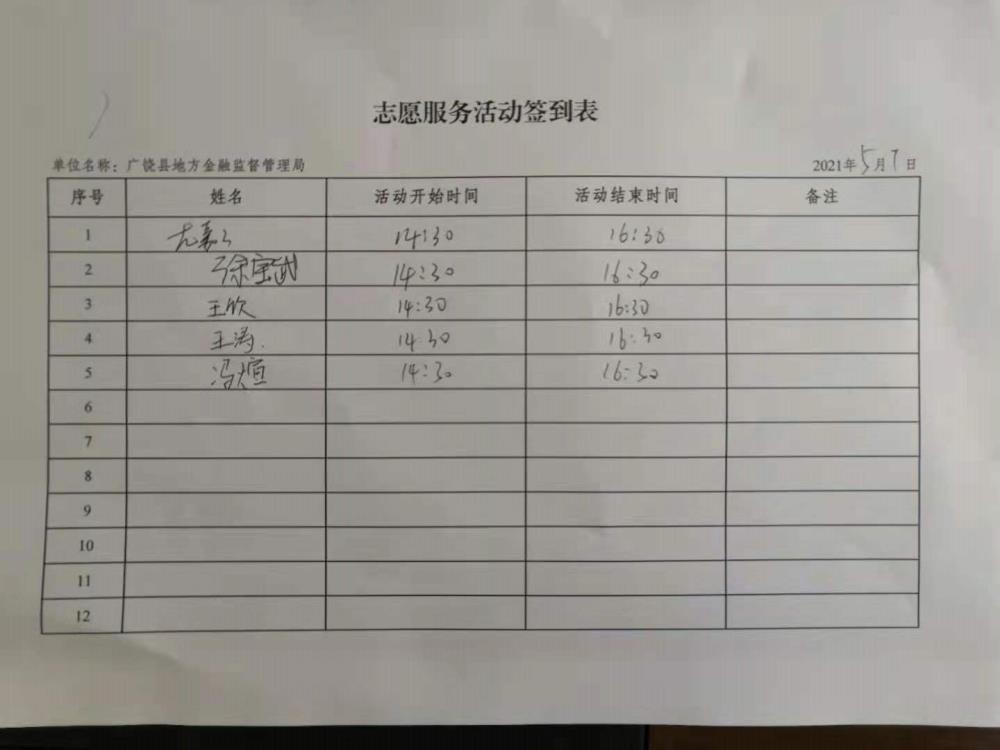 志愿服务活动签到表
单位名称：广饶县地方金融监督管理局 2021年5月7日
序号 姓名 活动开始时间 活动结束时间 备注
1 14:30 16:30
2 徐宝武 14:30 16:30
3 王欣 14:30 16:30
4 王涛 14:30 16:30
5 冯煊 14:30 16:30
6
7
8
9
10
11
12